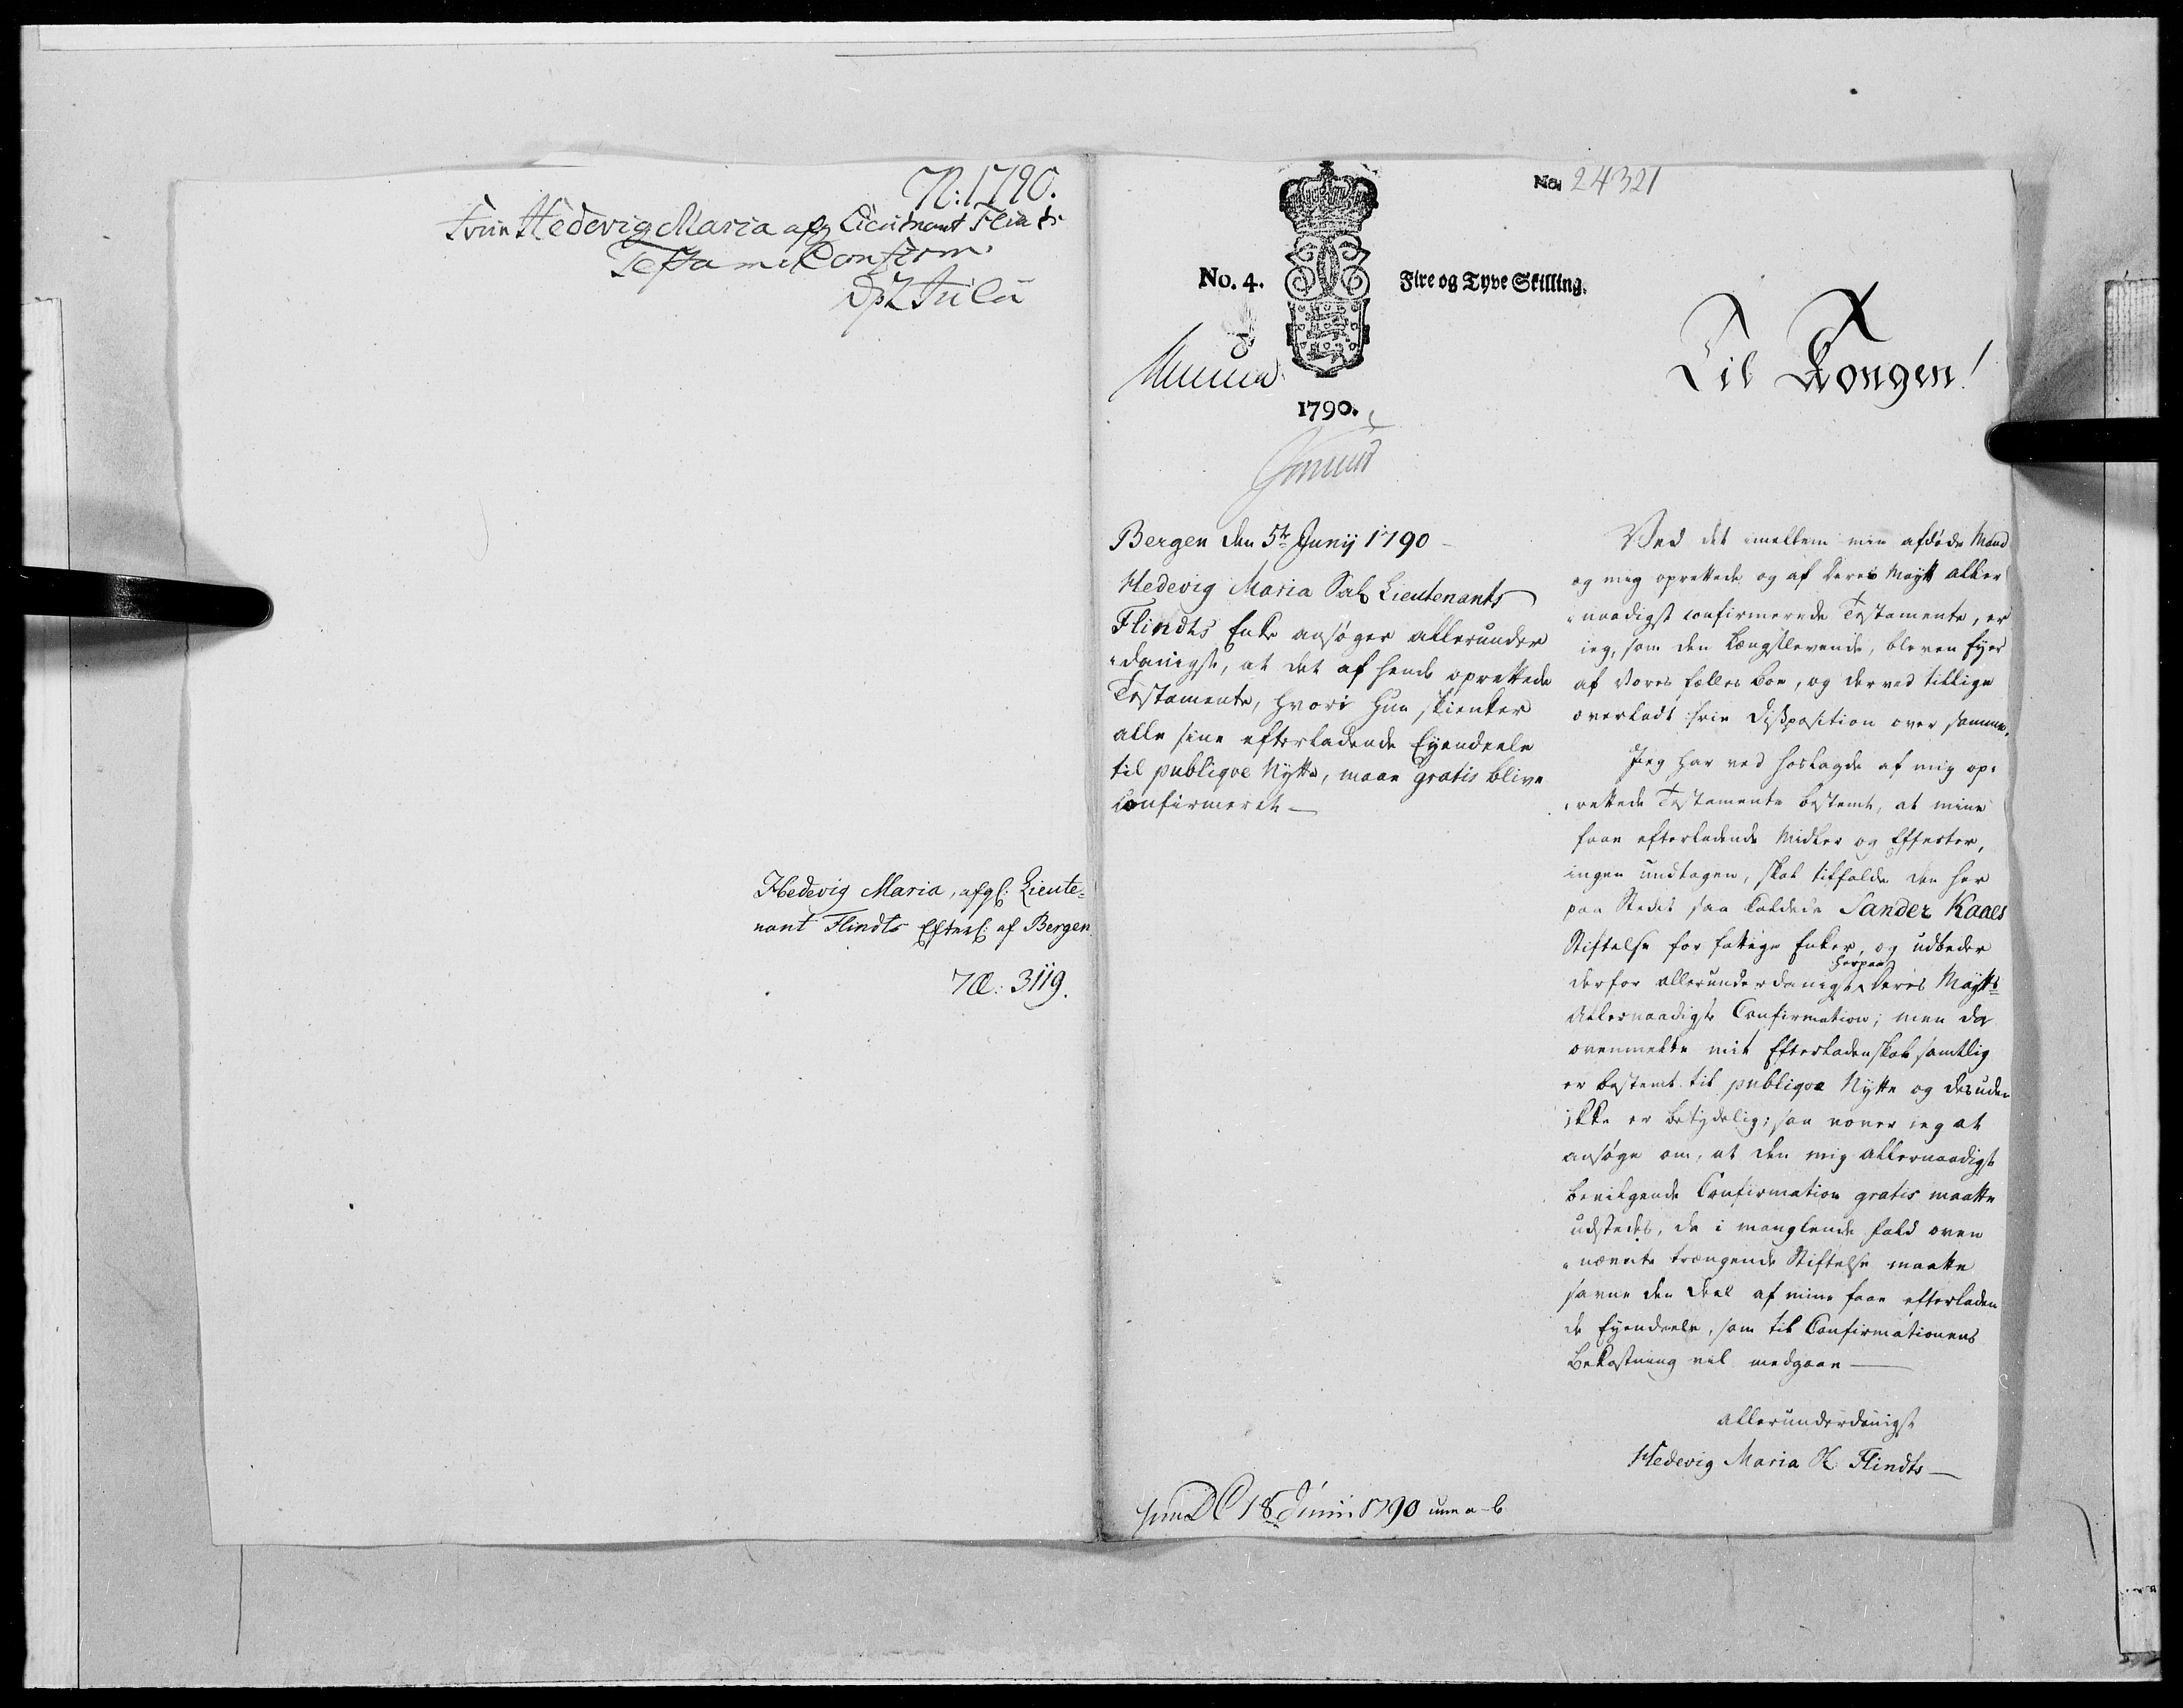 N: 1790.
Frue Hedevig Maria afg Lieutnant Flindts
Testam: Confirm
Dp 2 Julii
Hedevig Maria, afgl: Lieute-
nant Flindts Efterl: af Bergen.
Æ: 3119.
No. 24321
No. 4. Fire og Tyve Skilling.
1790.
Til Kongen!
Bergen den 5te Junij 1790
Hedevig Maria Sal Lieutenants
Flindts Enke ansøger allerunder
danigst, at det af hende oprettede
Testamente, hvori hun skienker
alle sine efterladende Eyendeele
til publiqve Nytte, maae gratis blive
Confirmeret
Ved det imellem min afdøde Mand
og mig oprettede og af Deres Maytt aller
naadigst confirmerede Testamente, er
ieg, som den Længstlevende, bleven Eyer
af vores fælles Boe, og derved tillige
overladt frie Disposition over samme.
Jeg har ved hoslagde af mig op-
rettede Testamente bestemt, at mine
faae efterladende Midler og Effecter,
ingen undtagen, skal tilfalde den her
paa Stedet saa kaldede Sander Kaaes
Stiftelse for fattige Enker, og udbeder
herpaa
derfor allerunderdanigst Deres Maytts
Allernaadigste Confirmation; men da
ovenmelte mit Efterladenskab samtlig
er bestemt til publiqve Nytte og desuden
ikke er betydelig; saa vover ieg at
ansøge om, at den mig allernaadigst
bevilgende Confirmation gratis maatte
udstedes, da i manglende fald oven
nævnte trængende Stiftelse maatte
savne den Deel af mine faae efterladen
de Eyendeele, som til Confirmationens
Bekostning vil medgaae
allerunderdanigst
Hedevig Maria Sl Flindts
18 Junii 1790